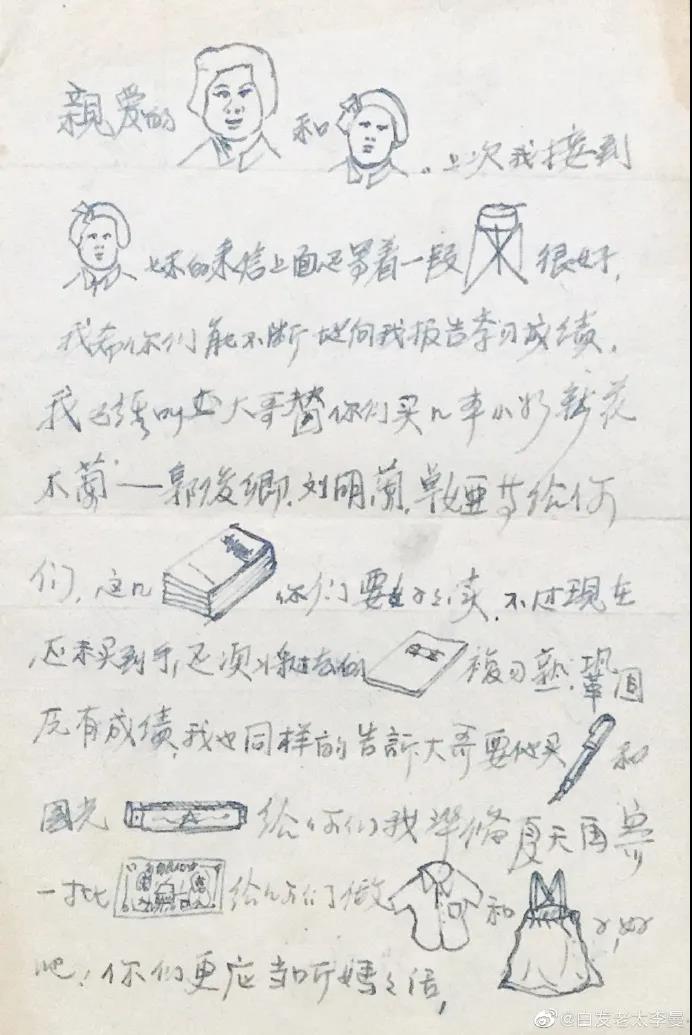 亲爱的 和 。上次我接到
妹的来信上面还写着一段 很好，
我希你们能不断地向我报告学习成绩。
我已经叫 大哥替你们买几本小 花
木蘭——郭俊卿、刘明蘭、 给你
们，这几 你们要好好读，不过现在
还未买到手，还须 将过去的 複习熟，鞏固
原有成绩，我也同样的告訴大哥要他买 和
國光 给你们我準备夏天再寄
一批 给你们做 和 ，好
吧！你们更应当听媽媽话，
@白发老太李曼